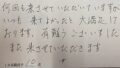 何回も来させていただいていますが
いつも 来てよかったと 大満足して
おります。有難うございました
また来させていただきます